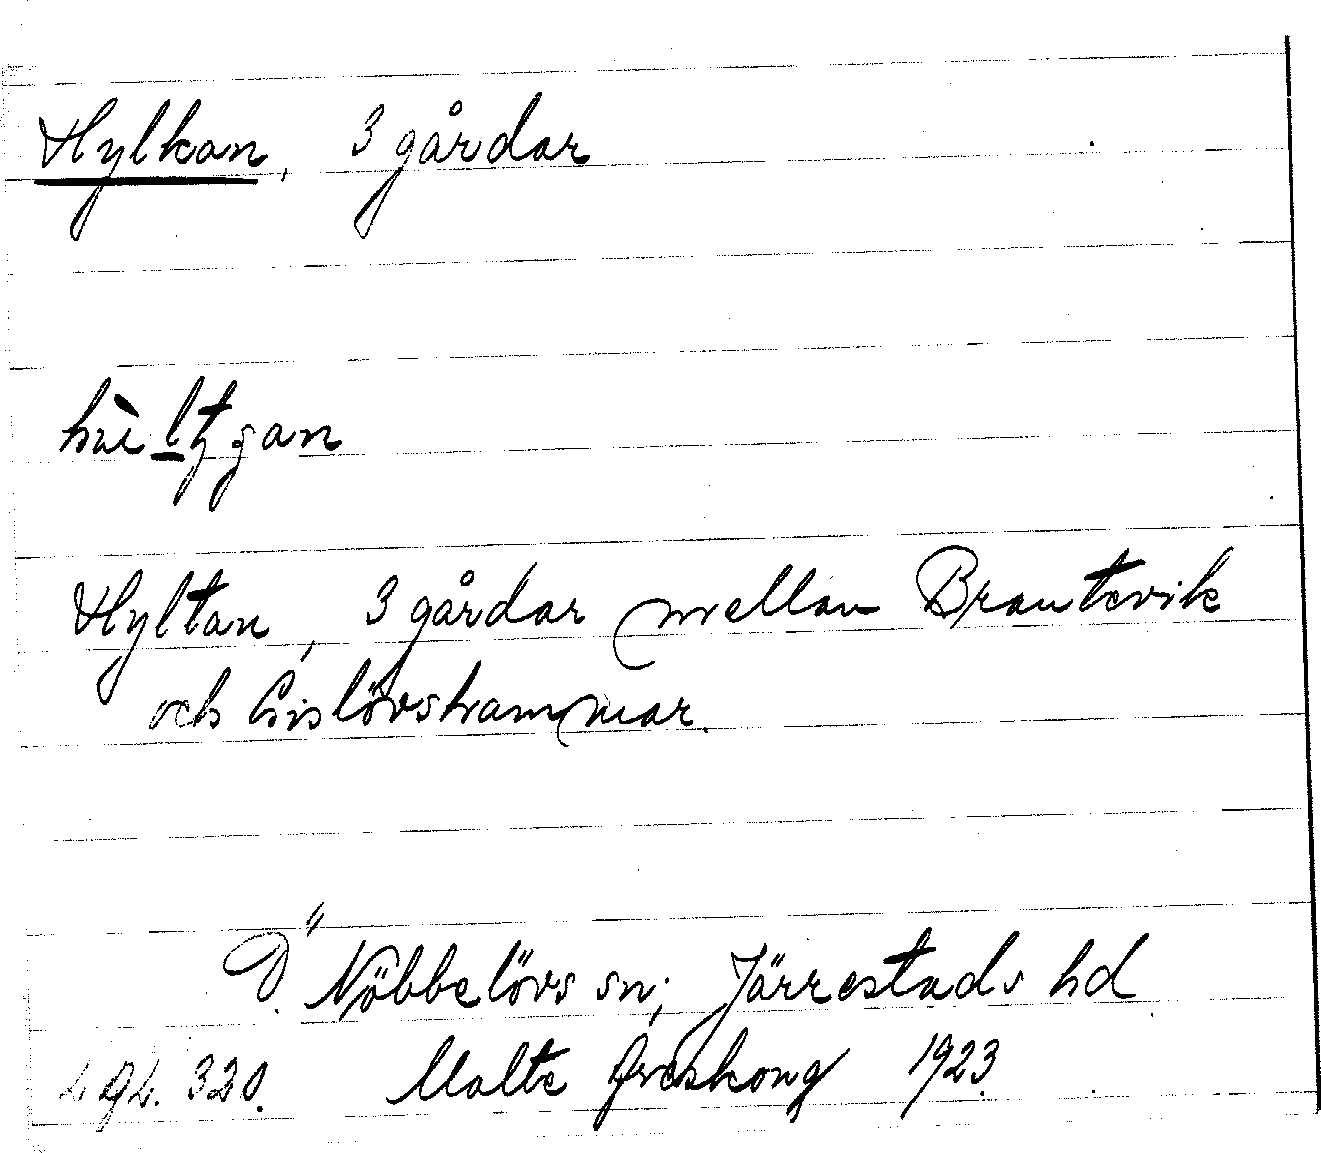 Hylkan, 3 gårdar
Hyltan, 3 gårdar mellan Brantevik
och Gislövshammar.
Ö Nöbbelövs sn; Järrestads hd
320. Malte Areskoug 1923.